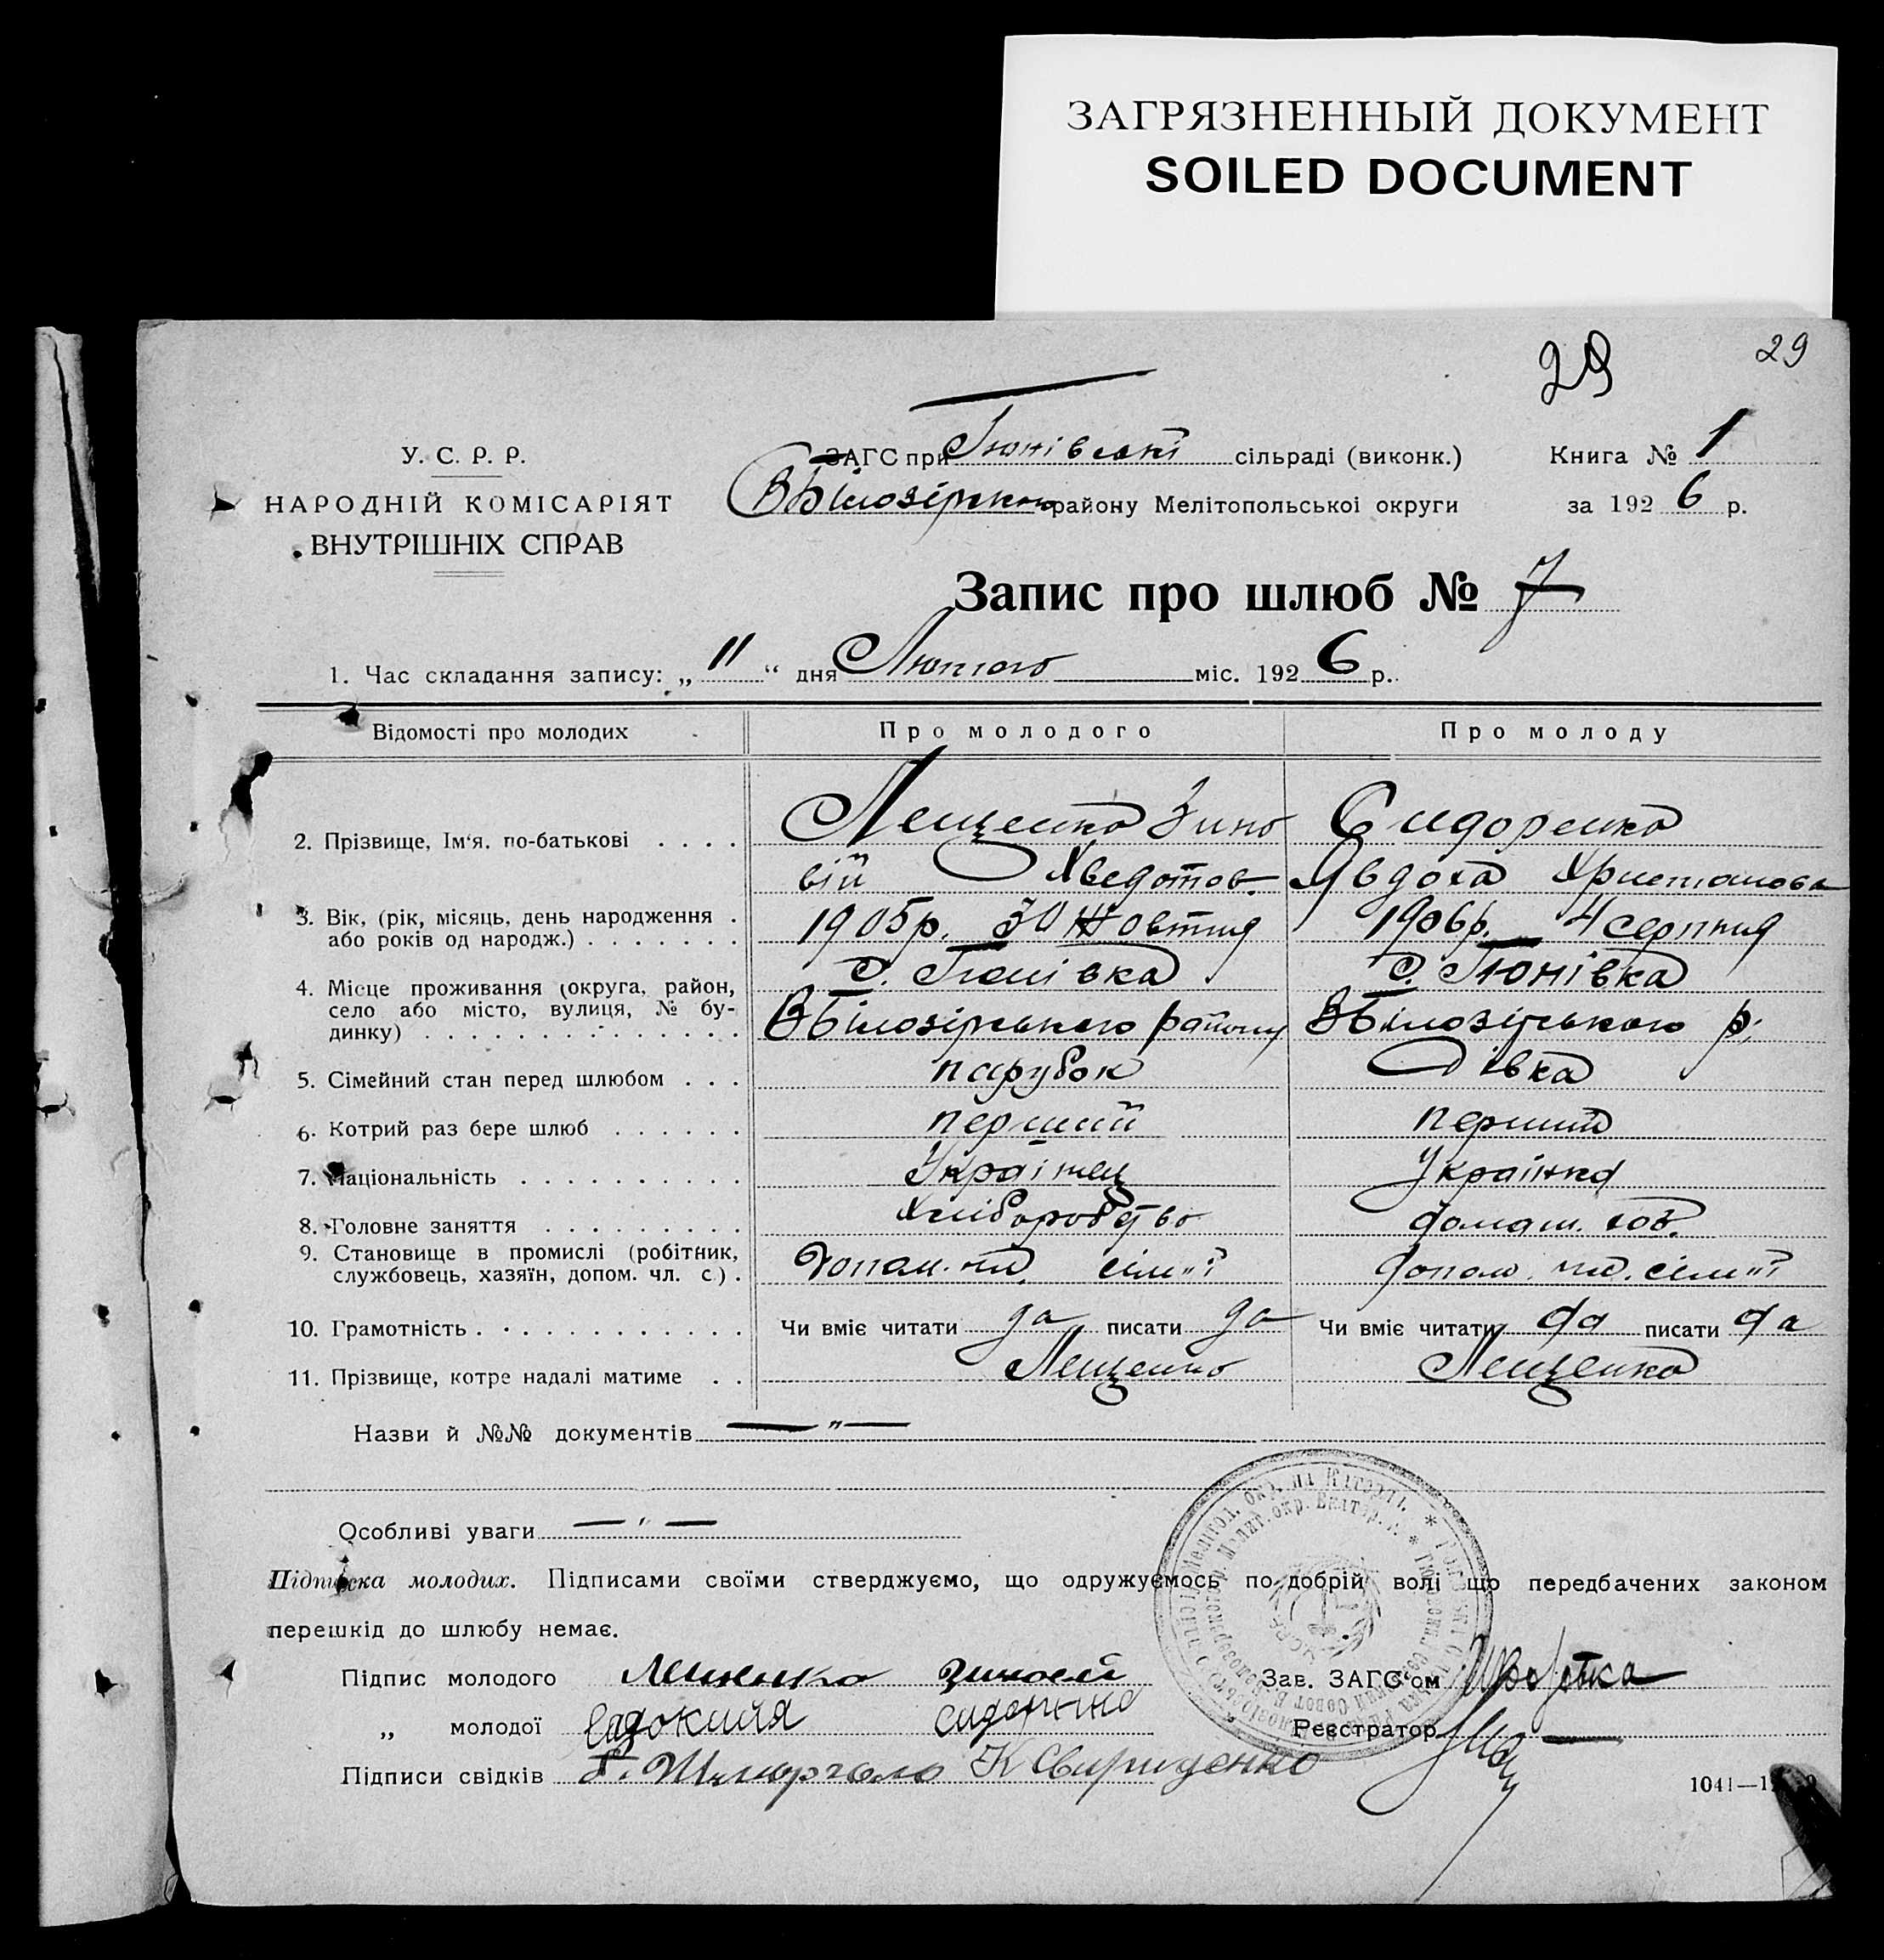 ЗАГРЯЗНЕННЫЙ ДОКУМЕНТ
SOILED DOCUMENT
29 29
У. С. Р. Р.
НАРОДНІЙ КОМІСАРІЯТ
ВНУТРІШНІХ СПРАВ
ЗАГС при Гюнівські сільраді (виконк.) Книга № 1
ВБілозірського району Мелітопольськоі округи за 1926 р.
Запис про шлюб № 7
1. Час складання запису: „11“ дня Лютого міс. 1926 р.
Відомості про молодих Про молодого Про молоду
2. Прізвище, Ім'я. по-батькові Лещенко Зино Сидоренко
вій Хведотов. Явдоха Христанова
3. Вік, (рік, місяць, день народження 1905р. 30 Жовтня 1906р. 4 серпня
або років од народж.)
с. Гюнівка с. Гюнівка
4. Місце проживання (округа, район,
село або місто, вулиця, № бу- ВБілозірського району ВБілозірського р.
динку)
5. Сімейний стан перед шлюбом парубок Дівка
6. Котрий раз бере шлюб перший перший
7. Національність Українец Українка
8. Головне заняття Хліборобство домаш. хоз.
9. Становище в промислі (робітник, допом. чл. сім"ї допом. чл. сім"ї
службовець, хазяїн, допом. чл. с.)
10. Грамотність Чи вміє читати да писати да Чи вміє читати да писати да
11. Прізвище, котре надалі матиме Лещенко Лещенко
Назви й №№ документів — " —
Особливі уваги — " —
Підписка молодих. Підписами своїми стверджуємо, що одружуємось по добрій волі що передбачених законом
перешкід до шлюбу немає.
Підпис молодого Лещенко Зиновій Зав. ЗАГС'ом
„ молодої Евдокийя Реєстратор
Підписи свідків К Свириденко
1041—1